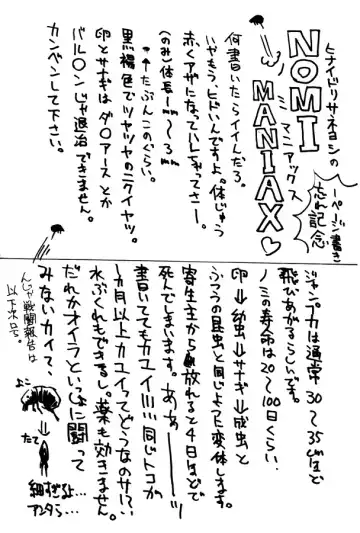 ヒナイドリサネヨシの
NOMI
ミニマニアックス
MANIAX♡
一ページ書き
忘れ記念
何書いたらイイんだろ。
いやもう、ヒドいんですよ。体じゅう
赤くアザになって
(のみ)体長1mm～3mm
↑たぶんこのぐらい。
黒褐色でツヤツヤのニクイヤツ。
卵とサナギはダ〇アースとか
バル〇ンじゃ退治できません。
カンベンして下さい。
ジャンプ力は通常30～35cmほど
飛びあがるらしいです。
ノミの寿命は20～100日くらい。
卵⇨幼虫⇨サナギ⇨成虫と
ふつうの昆虫と同じように変体します。
寄生主から放れると4日ほどで
死んでしまいます。あぁーーーッ
書いててもカユイ!!!!同じトコが
1カ月以上カユイってどうなのサ!?
水ぶくれもできるし。薬も効きません。
だれかオイラといっしょに闘って
みないカイ?、
んじゃ戦闘報告は
以下次号。
よこ
たて
細すぎるよ…
アンタら…